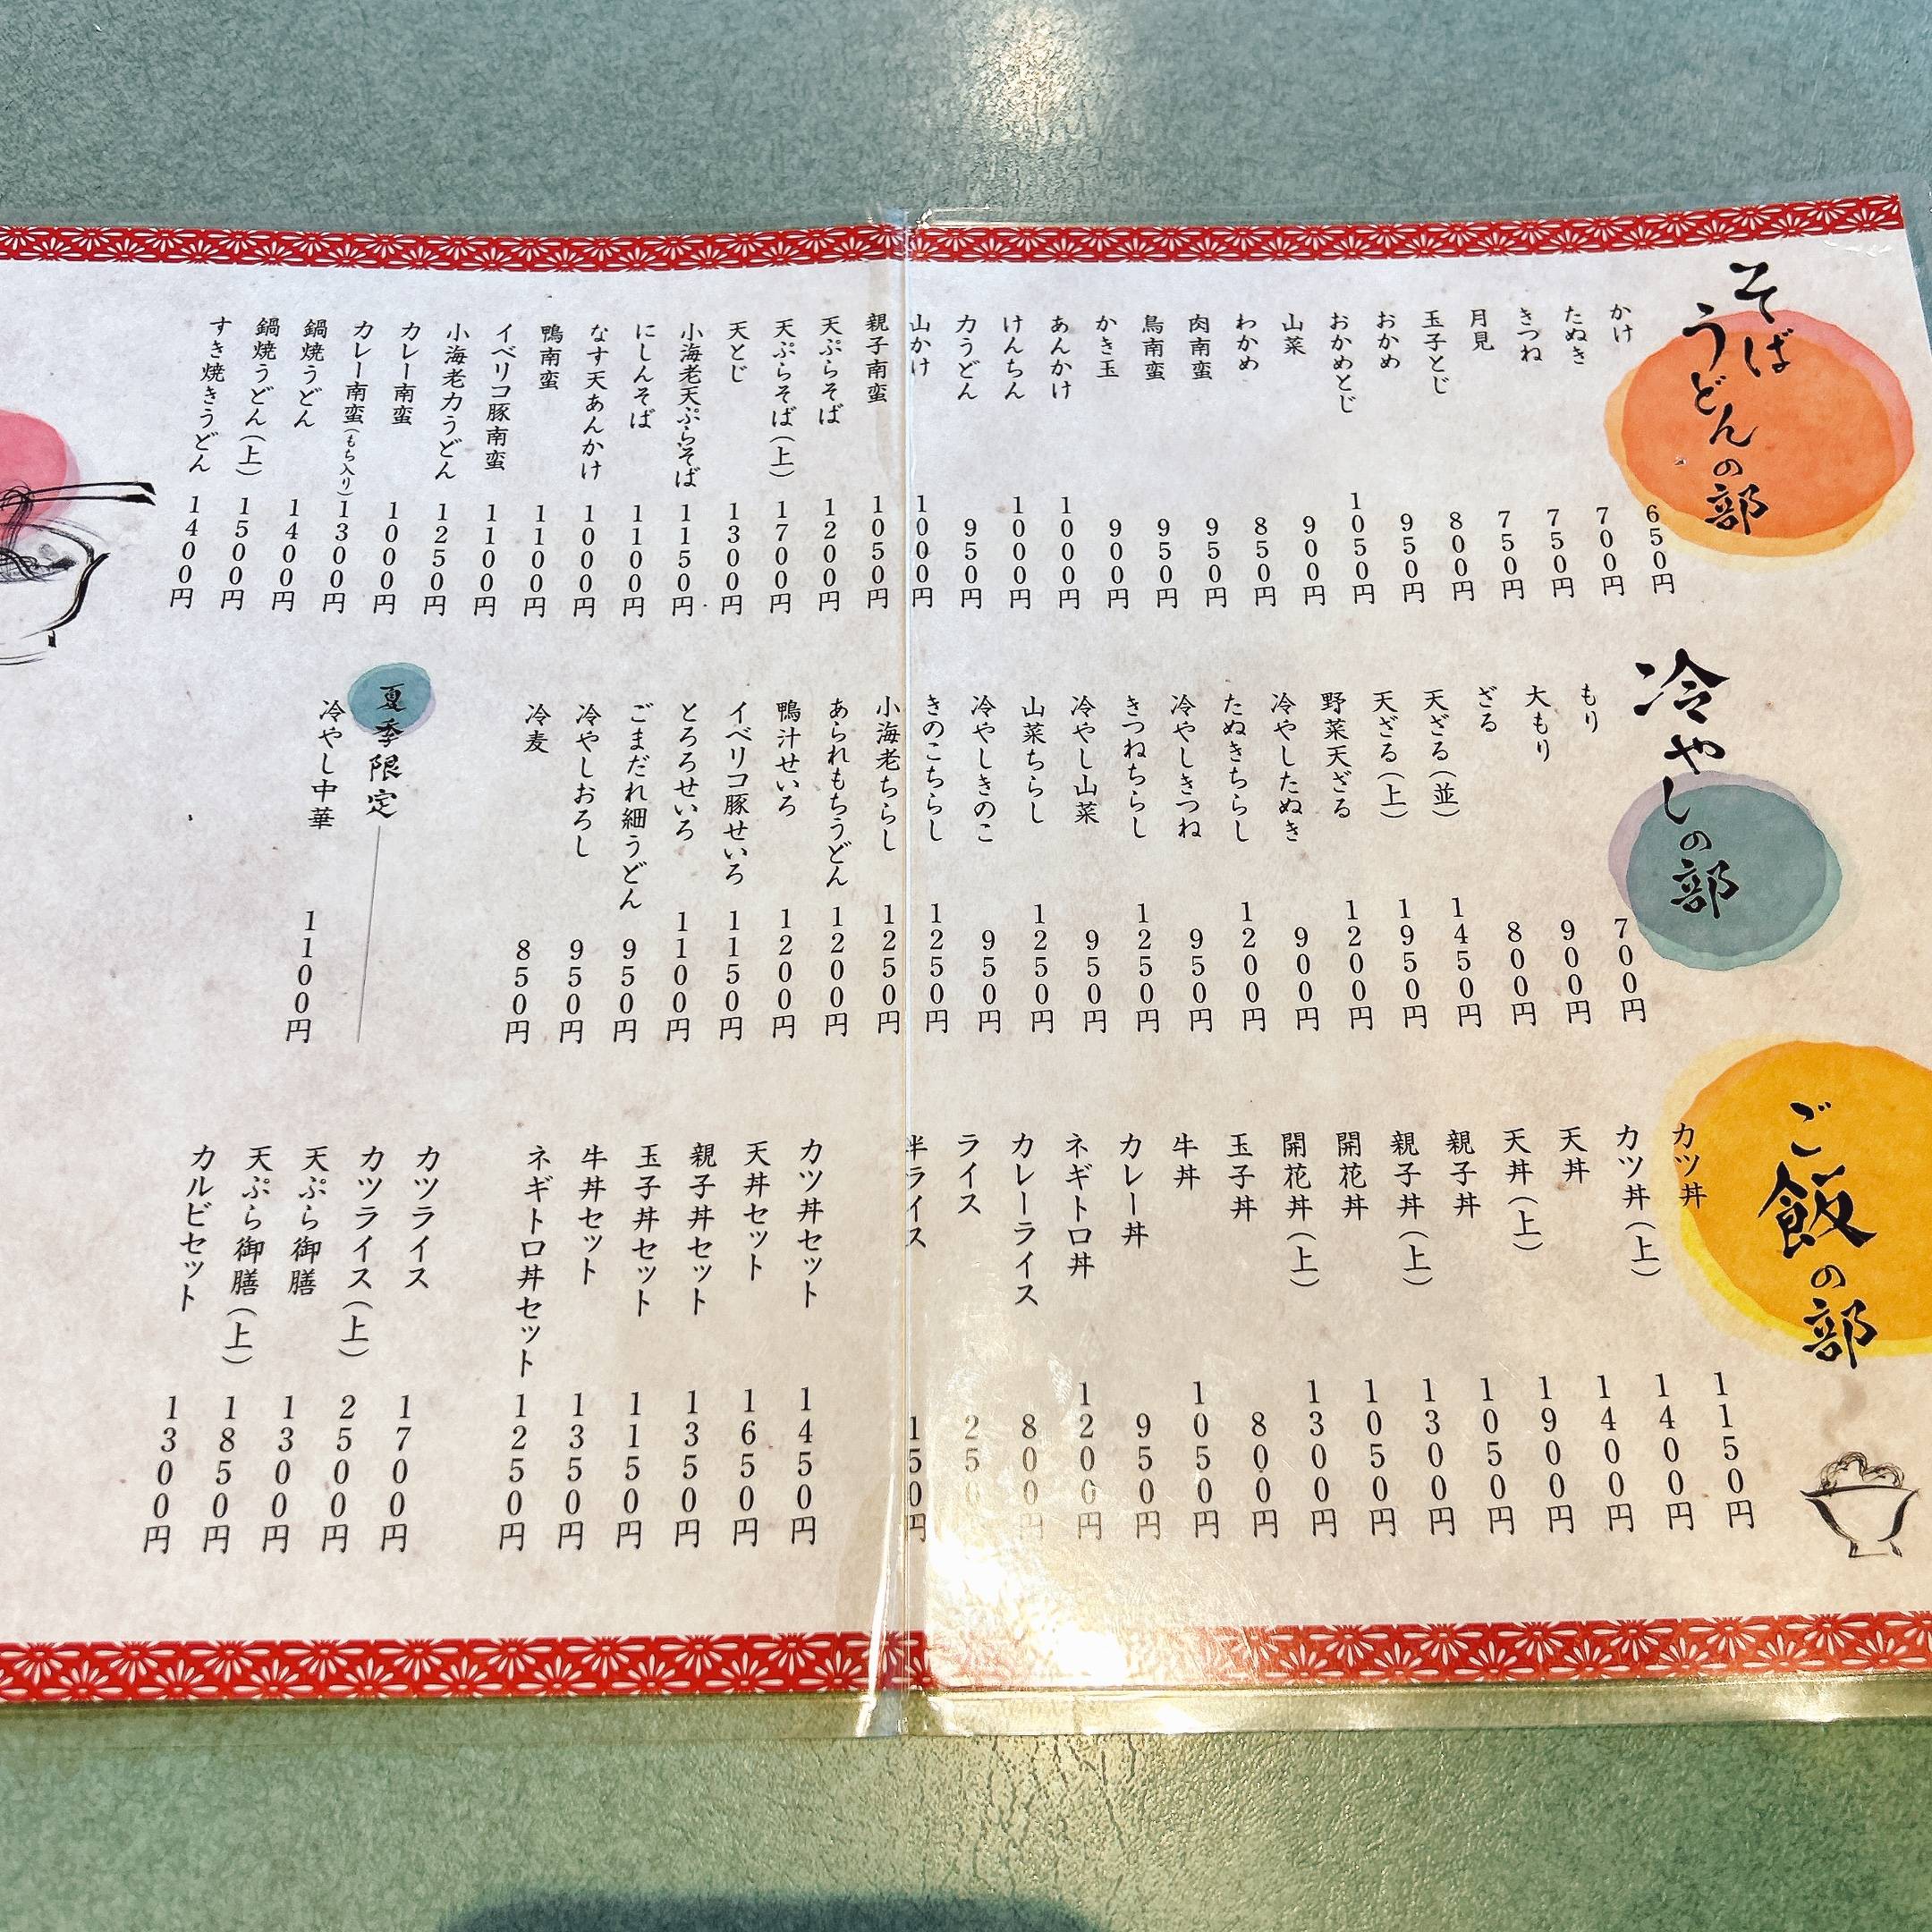 そば
うどんの部
かけ 650円
たぬき 700円
きつね 750円
月見 750円
玉子とじ 800円
おかめ 950円
おかめとじ 1050円
山菜 900円
わかめ 850円
肉南蛮 950円
鳥南蛮 950円
かき玉 900円
あんかけ 1000円
けんちん 1000円
力うどん 950円
山かけ 1000円
親子南蛮 1050円
天ぷらそば 1200円
天ぷらそば(上) 1700円
天とじ 1300円
小海老天ぷらそば 1150円
にしんそば 1100円
なす天あんかけ 1000円
鴨南蛮 1100円
イベリコ豚南蛮 1100円
小海老力うどん 1250円
カレー南蛮 1000円
カレー南蛮(もち入り) 1300円
鍋焼うどん 1400円
鍋焼うどん(上) 1500円
すき焼きうどん 1400円
冷やしの部
もり 700円
大もり 900円
ざる 800円
天ざる(並) 1450円
天ざる(上) 1950円
野菜天ざる 1200円
冷やしたぬき 900円
たぬきちらし 1200円
冷やしきつね 950円
きつねちらし 1250円
冷やし山菜 950円
山菜ちらし 1250円
冷やしきのこ 950円
きのこちらし 1250円
小海老ちらし 1250円
あられもちうどん 1200円
鴨汁せいろ 1200円
イベリコ豚せいろ 1150円
とろろせいろ 1100円
ごまだれ細うどん 950円
冷やしおろし 950円
冷麦 850円
夏季限定
冷やし中華 1100円
ご飯の部
カツ丼 1150円
カツ丼(上) 1400円
天丼 1400円
天丼(上) 1900円
親子丼 1050円
親子丼(上) 1300円
開花丼 1050円
開花丼(上) 1300円
玉子丼 800円
牛丼 1050円
カレー丼 950円
ネギトロ丼 1200円
カレーライス 800円
ライス 250
半ライス 150円
カツ丼セット 1450円
天丼セット 1650円
親子丼セット 1350円
玉子丼セット 1150円
牛丼セット 1350円
ネギトロ丼セット 1250円
カツライス 1700円
カツライス(上) 2500円
天ぷら御膳 1300円
天ぷら御膳(上) 1850円
カルビセット 1300円